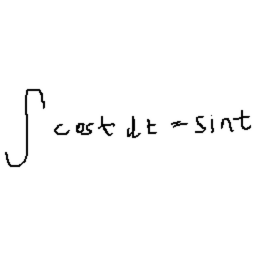 ∫ cost dt = sint